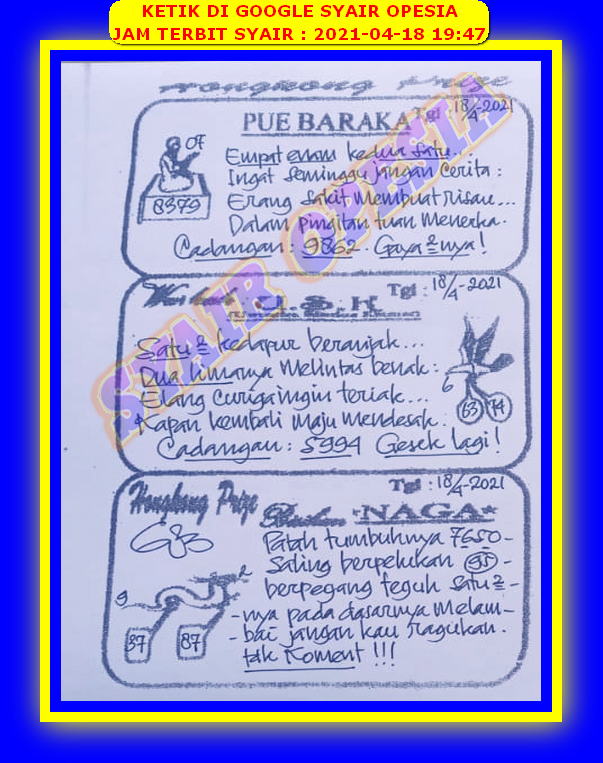 KETIK DI GOOGLE SYAIR OPESIA
JAM TERBIT SYAIR : 2021-04-18 19:47
Hongkong Prize
PUE BARAKA Tgl : 18/4-2021
07
8379
Empat enam kedua satu.
Ingat seminggu jangan cerita :
Erang sakit membuat risau...
Dalam pingitan tuan menerka.
Cadangan : 9862. Gaya2nya !
SYAIR OPESIA
Tgl : 18/4-2021
Satu2 kedapur beranjak...
Dua limanya melintas benak :
Elang curiga ingin teriak...
Kapan kembali maju mendesak.
Cadangan : 5994 Gesek lagi !
6
63 74
Hongkong Prize
Tgl : 18/4-2021
*NAGA*
Patah tumbuhnya 7650-
Saling berpelukan 95-
berpegang teguh satu2-
-nya pada dasarnya melam-
-bai jangan kau ragukan.
tak Koment !!!
9
2
37 87